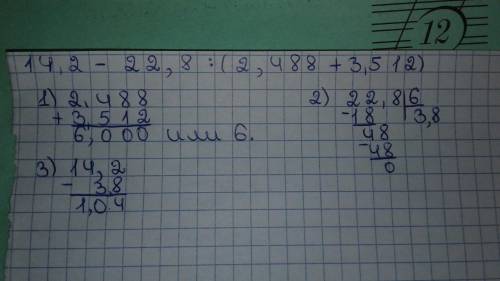 12
14,2 - 22,8 : (2,488 + 3,512)
1) 2,488
+ 3,512
6,000 или 6.
2) 22,8 | 6
- 18 | 3,8
48
- 48
0
3) 14,2
- 3,8
1,04